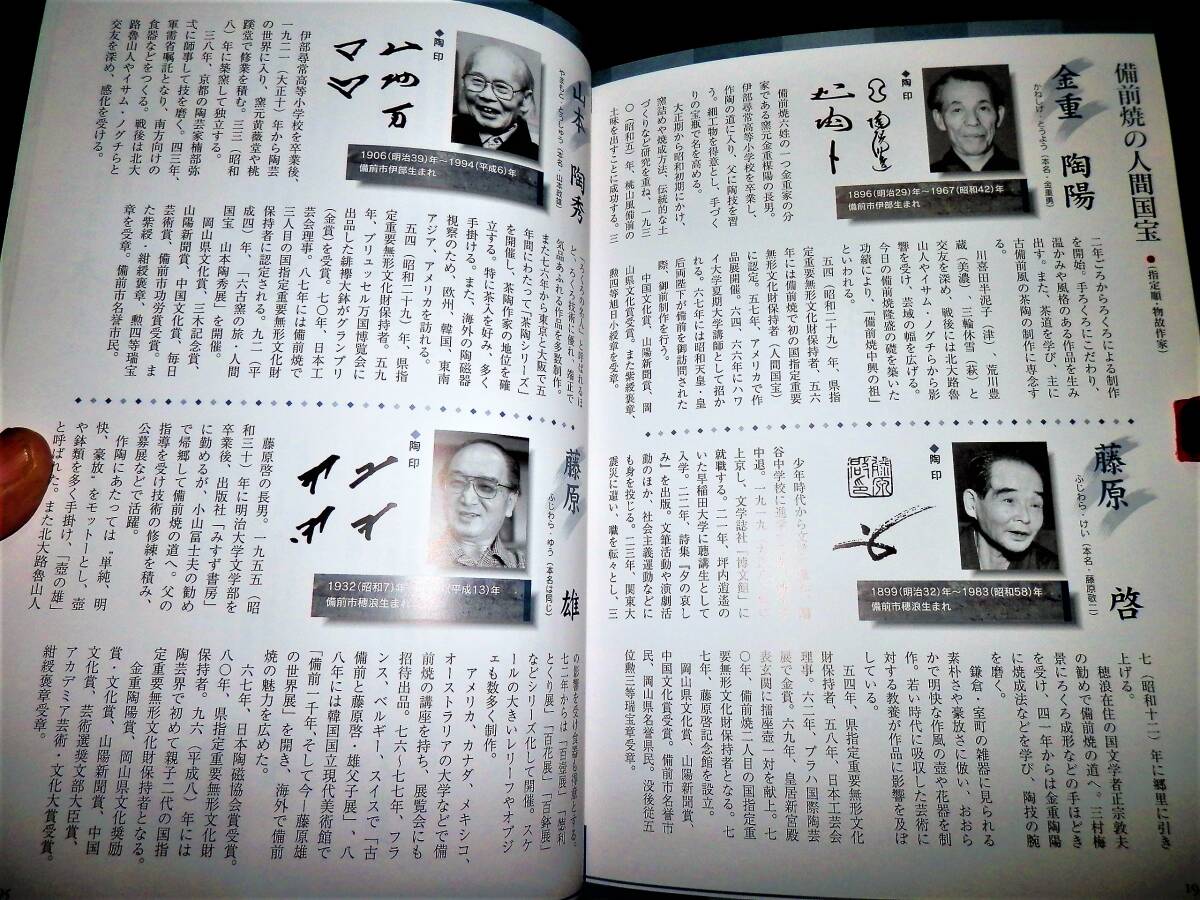 備前焼の人間国宝
●(指定順・物故作家)
金重 陶陽
かねしげ・とうよう(本名・金重勇)
◆陶印
1896(明治29)年〜1967(昭和42)年
備前市伊部生まれ
備前焼六姓の一つ金重家の分
家である窯元金重楳陽の長男。
伊部尋常高等小学校を卒業し、
作陶の道に入り、父に陶技を習
う。細工物を得意とし、手づく
りの宝瓶で名を高める。
大正期から昭和初期にかけ、
窯詰めや焼成方法、伝統的な土
づくりなど研究を重ね、一九三
〇(昭和五)年、桃山風備前の
土味を出すことに成功する。三
二年ごろからろくろによる制作
を開始。手ろくろにこだわり、
温かみや風格のある作品を生み
出す。また、茶道を学び、主に
古備前風の茶陶の制作に専念す
る。
川喜田半泥子(津)、荒川豊
蔵(美濃)、三輪休雪(萩)と
交友を深め、戦後には北大路魯
山人やイサム・ノグチらから影
響を受け、芸域の幅を広げる。
今日の備前焼隆盛の礎を築いた
功績により、「備前焼中興の祖」
といわれる。
五四(昭和二十九)年、県指
定重要無形文化財保持者、五六
年には備前焼で初の国指定重要
無形文化財保持者(人間国宝)
に認定。五七年、アメリカで作
品展開催。六四、六六年にハワ
イ大学夏期大学講師として招か
れる。六七年には昭和天皇・皇
后両陛下が備前を御訪問された
際、御前制作を行う。
中国文化賞、山陽新聞賞、岡
山県文化賞受賞。また紫綬褒章、
勲四等旭日小綬章を受章。
藤原 啓
ふじわら・けい(本名・藤原敬二)
◆陶印
1899(明治32)年〜1983(昭和58)年
備前市穂浪生まれ
少年時代から文
谷中学校に進学
中退。一九一九
上京し、文学誌社「博文館」に
就職する。二一年、坪内逍遥の
いた早稲田大学に聴講生として
入学。二二年、詩集『夕の哀し
み』を出版。文筆活動や演劇活
動のほか、社会主義運動などに
も身を投じる。二三年、関東大
震災に遭い、職を転々とし、三
七(昭和十二)年に郷里に引き
上げる。
穂浪在住の国文学者正宗敦夫
の勧めで備前焼の道へ。三村梅
景にろくろ成形などの手ほどき
を受け、四一年からは金重陶陽
に焼成法などを学び、陶技の腕
を磨く。
鎌倉・室町の雑器に見られる
素朴さや豪放さに倣い、おおら
かで明快な作風の壺や花器を制
作。若い時代に吸収した芸術に
対する教養が作品に影響を及ぼ
している。
五四年、県指定重要無形文化
財保持者、五八年、日本工芸会
理事。六二年、プラハ国際陶芸
展で金賞。六九年、皇居新宮殿
表玄関に擂座壺一対を献上。七
〇年、備前焼二人目の国指定重
要無形文化財保持者となる。七
七年、藤原啓記念館を設立。
岡山県文化賞、山陽新聞賞、
中国文化賞受賞。備前市名誉市
民、岡山県名誉県民。没後従五
位勲三等瑞宝章受章。
19
山本 陶秀
やまもと・とうしゅう(本名・山本政雄)
◆陶印
1906(明治39)年〜1994(平成6)年
備前市伊部生まれ
伊部尋常高等小学校を卒業後、
一九二一(大正十)年から陶芸
の世界に入り、窯元黄薇堂や桃
蹊堂で修業を積む。三三(昭和
八)年に築窯して独立する。
三八年、京都の陶芸家楠部弥
弌に師事して技を磨く。四三年、
軍需省嘱託となり、南方向けの
食器などをつくる。戦後は北大
路魯山人やイサム・ノグチらと
交友を深め、感化を受ける。
「ろくろの名人」と呼ばれるほ
ど、ろくろ技術に優れ、端正で
気品あふれる作品を多数制作。
また七六年から東京と大阪で五
年間にわたって「茶陶シリーズ」
を開催し、茶陶作家の地位を確
立する。特に茶入を好み、多く
手掛ける。また、海外の陶磁器
視察のため、欧州、韓国、東南
アジア、アメリカを訪れる。
五四(昭和二十九)年、県指
定重要無形文化財保持者。五九
年、ブリュッセル万国博覧会に
出品した緋襷大鉢がグランプリ
(金賞)を受賞。七〇年、日本工
芸会理事。八七年には備前焼で
三人目の国指定重要無形文化財
保持者に認定される。九二(平
成四)年、「六古窯の旅・人間
国宝 山本陶秀展」を開催。
岡山県文化賞、三木記念賞、
山陽新聞賞、中国文化賞、毎日
芸術賞、備前市功労賞受賞。ま
た紫綬・紺綬褒章、勲四等瑞宝
章を受章。備前市名誉市民。
藤原 雄
ふじわら・ゆう(本名は同じ)
◆陶印
1932(昭和7)年 (平成13)年
備前市穂浪生まれ
藤原啓の長男。一九五五(昭
和三十)年に明治大学文学部を
卒業後、出版社「みすず書房」
に勤めるが、小山冨士夫の勧め
で帰郷して備前焼の道へ。父の
指導を受け技術の修練を積み、
公募展などで活躍。
作陶にあたっては“単純、明
快、豪放”をモットーとし、壺
や鉢類を多く手掛け、「壺の雄」
と呼ばれた。また北大路魯山人
の影響を受け食器も得意とする。
七二年からは「百壺展」「徳利
とぐり展」「百花展」「百鉢展」
などシリーズ化して開催。スケ
ールの大きいレリーフやオブジ
ェも数多く制作。
アメリカ、カナダ、メキシコ、
オーストラリアの大学などで備
前焼の講座を持ち、展覧会にも
招待出品。七六〜七七年、フラ
ンス、ベルギー、スイスで「古
備前と藤原啓・雄父子展」、八
八年には韓国国立現代美術館で
「備前一千年、そして今—藤原雄
の世界展」を開き、海外で備前
焼の魅力を広めた。
六七年、日本陶磁協会賞受賞。
八〇年、県指定重要無形文化財
保持者。九六(平成八)年には
陶芸界で初めて親子二代の国指
定重要無形文化財保持者となる。
金重陶陽賞、岡山県文化奨励
賞・文化賞、山陽新聞賞、中国
文化賞、芸術選奨文部大臣賞、
アカデミア芸術・文化大賞受賞。
紺綬褒章受章。